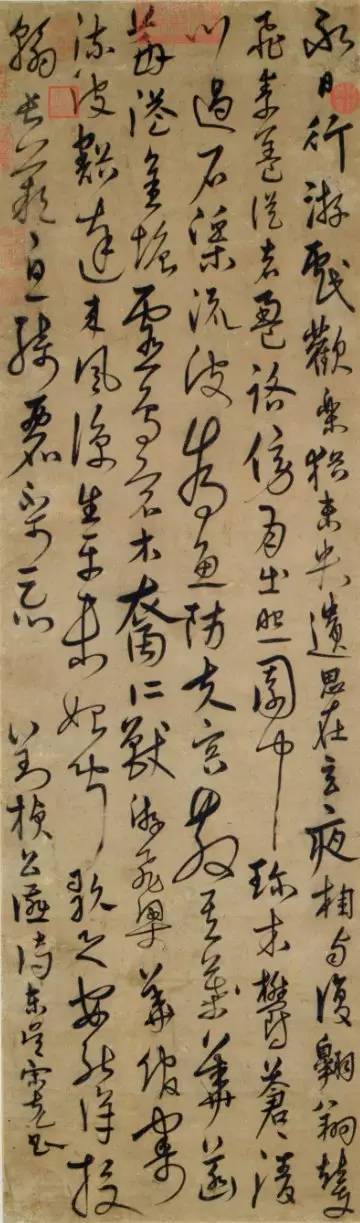 永日行游戲歡樂猶未央遺思在玄夜相與復翱翔輦車
飛素蓋從者盈路傍月出照園中珍木鬱蒼蒼清
川過石渠流波為魚防夫容散其華菡
萏溢金塘靈鳥宿水裔仁獸游飛梁華館寄
流波豁達來風涼生平未始聞歌之安能詳投
翰長歎息綺麗不可忘
劉楨公讌詩東吳宋克書